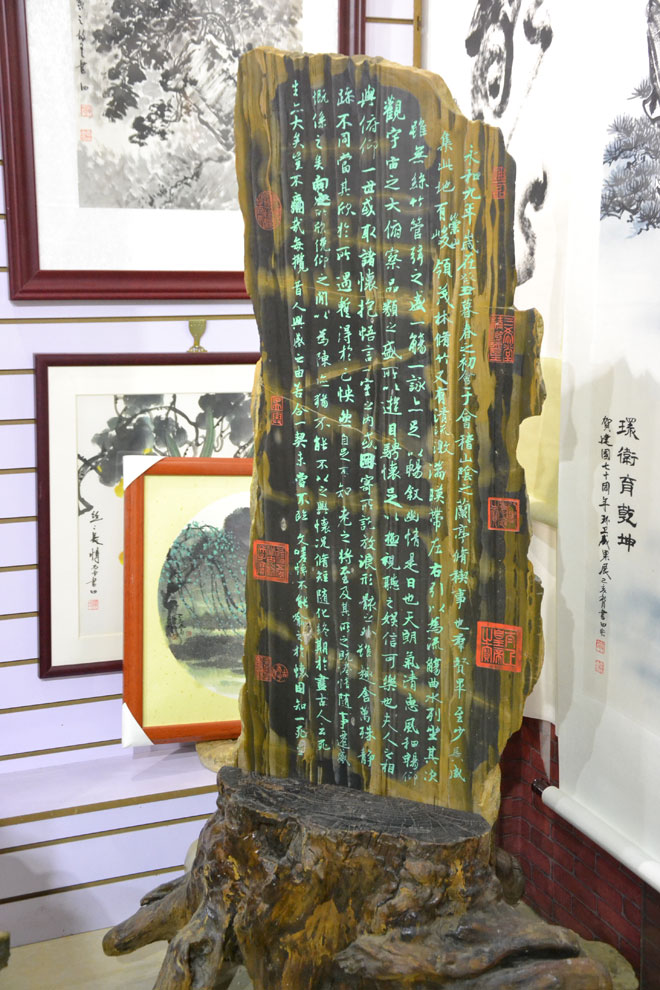 永和九年歲在癸丑暮春之初會于會稽山陰之蘭亭脩稧事也群賢畢至少長咸
集此地有崇山峻領茂林脩竹又有清流激湍暎帶左右引以為流觴曲水列坐其次
雖無絲竹管絃之盛一觴一詠亦足以暢敘幽情是日也天朗氣清惠風和暢仰
觀宇宙之大俯察品類之盛所以遊目騁懷足以極視聽之娛信可樂也夫人之相
與俯仰一世或取諸懷抱悟言一室之內或因寄所託放浪形骸之外雖趣舍萬殊靜
躁不同當其欣於所遇暫得於己快然自足不知老之將至及其所之既惓情隨事遷感
慨係之矣向之所欣俛仰之間以為陳迹猶不能不以之興懷況脩短隨化終期於盡古人云死
生亦大矣豈不痛哉每攬昔人興感之由若合一契未嘗不臨文嗟悼不能喻之於懷固知一死
環衛育乾坤
賀建國七十周年